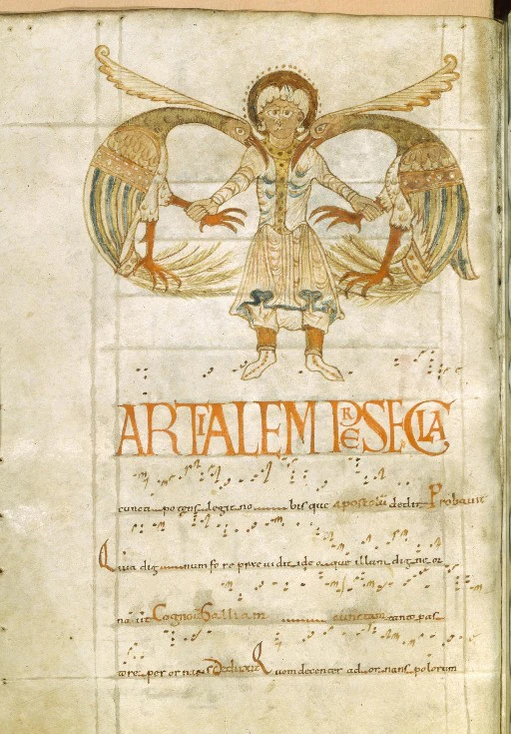 ARTIALEM PRESECLA
cuncta potens legit no bisque apostolū dedit Probauit
Quia dignum fore preuidit ideoque illum digne or
na uit Cognoui Galliam cunctam tanto pas
tore per ornas Deduxi Quem decenter ad ornans polorum